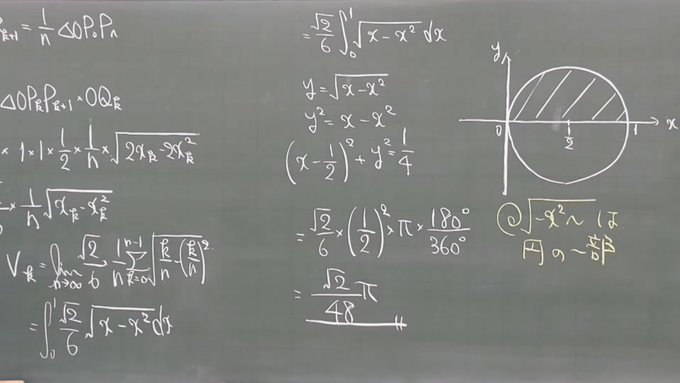 k+1 = 1/n △OP₀Pₙ
△OPₖPₖ₊₁・OQₖ
× 1 × 1 × 1/2 × 1/n × √(2xₖ − 2xₖ²)
× 1/n √(xₖ − xₖ²)
Vₖ = lim n→∞ √2/6 · 1/n Σ k=0 n−1 √(k/n − (k/n)²)
= ∫₀¹ √2/6 √(x − x²) dx
= √2/6 ∫₀¹ √(x − x²) dx
y = √(x − x²)
y² = x − x²
(x − 1/2)² + y² = 1/4
= √2/6 × (1/2)² × π × 180°/360°
= √2/48 π
y
0 1/2 1 x
@ √(−x²〜) は
円の一部